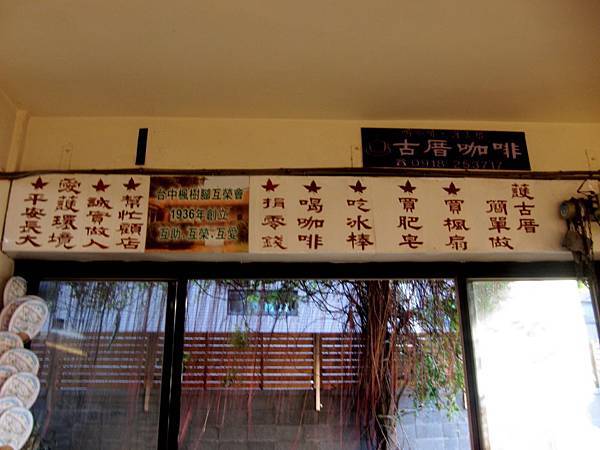 古厝咖啡
0918-253717
護古厝
簡單做
★買楓扇
★買肥皂
★吃冰棒
★喝咖啡
★捐零錢
台中楓樹腳互榮會
1936年創立
互助、互榮、互愛
★幫忙顧店
★誠實做人
★愛護環境
★平安長大